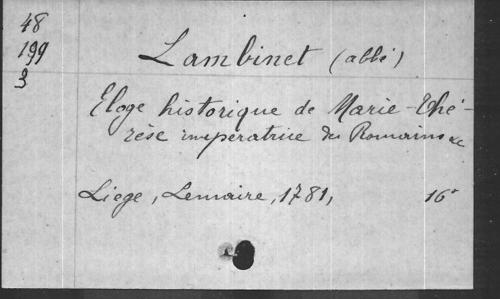 48
199
3
Lambinet (abbé)
Eloge historique de Marie-Thé-
rèse imperatrice des Romains &c
Liege, Lemaire, 1781, 16°